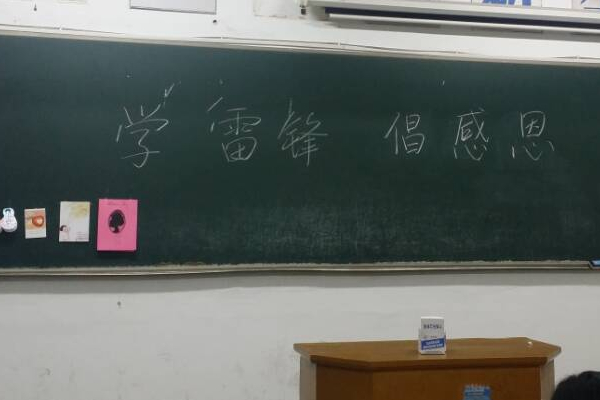 学雷锋 倡感恩